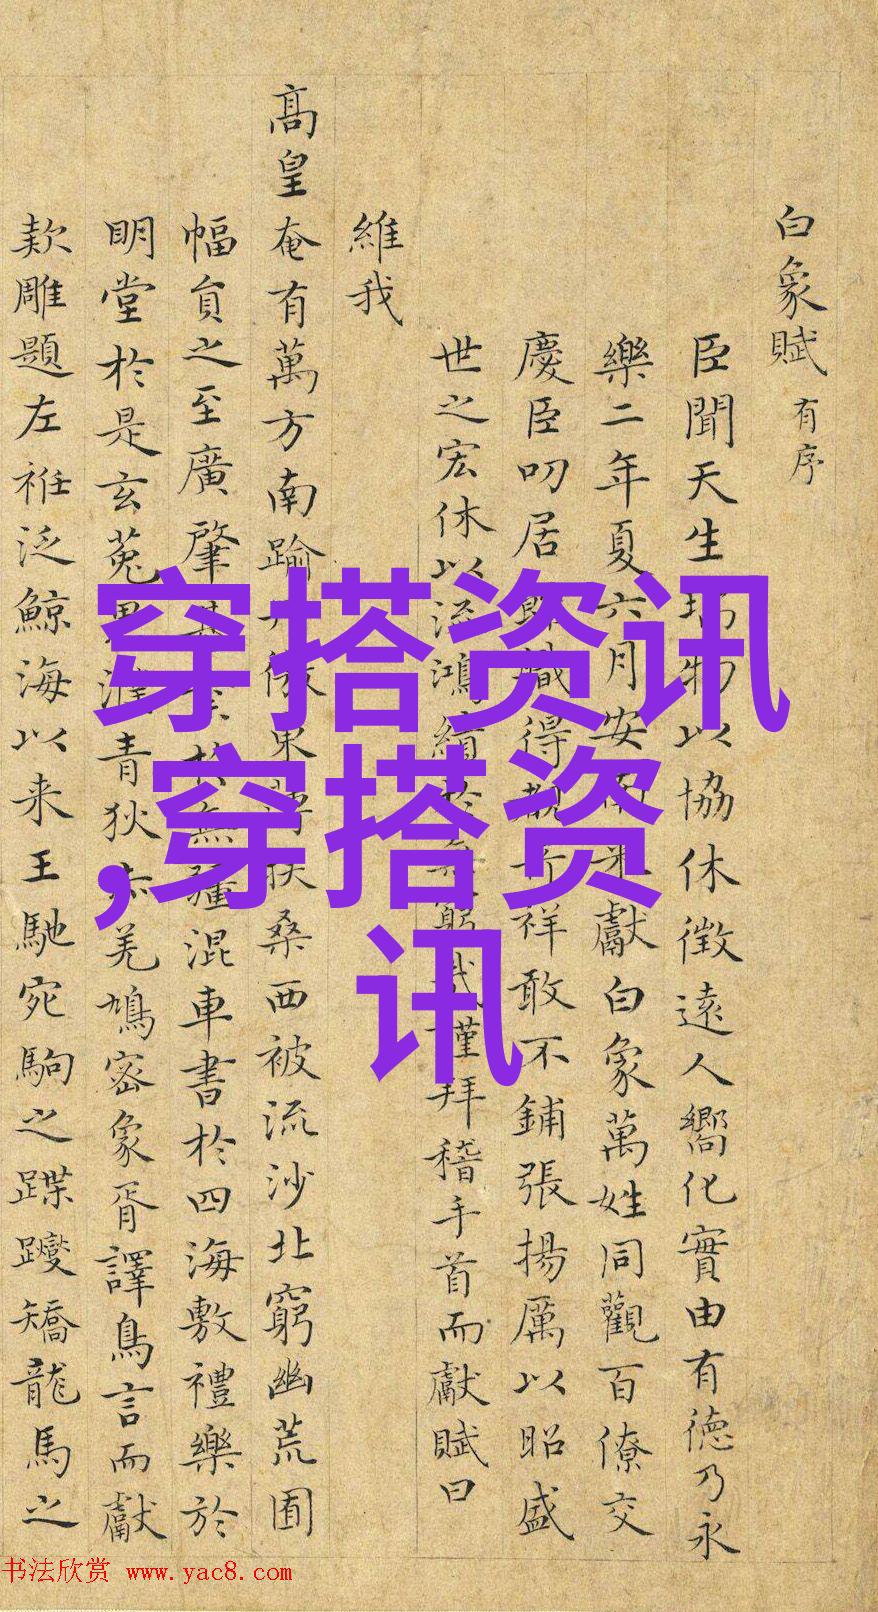 白象賦有序
臣聞天生瑞物以協休徵遠人嚮化實由有德乃永
樂二年夏六月安南来獻白象萬姓同觀百僚交
慶臣叨居職得覩祥敢不鋪張揚厲以昭盛
世之宏休以流鴻績於無窮哉謹拜稽手首而獻賦曰
維我
髙皇奄有萬方南踰東扶桑西被流沙北窮幽荒囿
幅員之至廣肇於無疆混車書於四海敷禮樂於
明堂於是玄菟青狄赤羌鳩宻象胥譯鳥言而獻
欵雕題左袵泛鯨海以来王馳宛駒之蹀躞矯龍馬之
穿搭资讯
,穿搭资
讯
书法欣赏 www.yac8.com